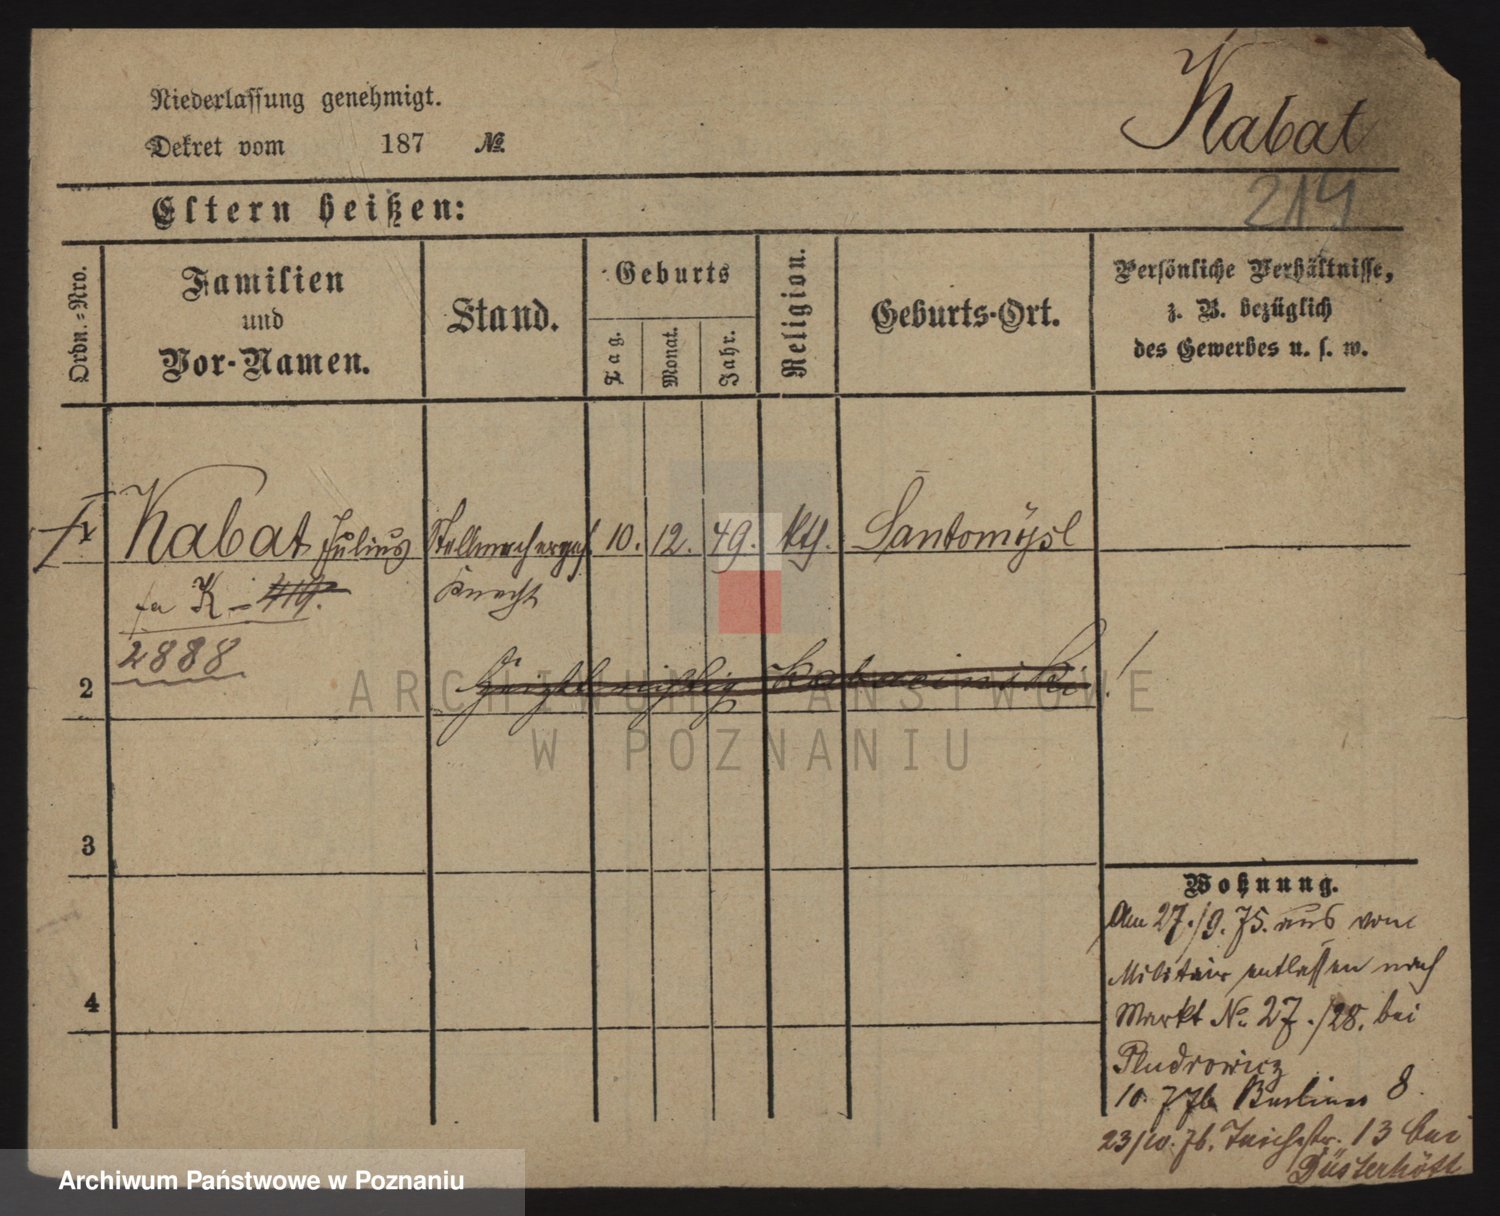 Kabat
Niederlassung genehmigt.
Dekret vom 187 №.
214
Eltern heißen:
Ordn.=Nro.
Familien
und
Vor-Namen.
Stand.
Geburts
Tag.
Monat.
Jahr.
Religion.
Geburts-Ort.
Persönliche Verhältnisse,
z. B. bezüglich
des Gewerbes u. s. w.
Kabat Julius Stellmacherges. 10. 12. 49. kth. Santomysl
fa K – 419.
Knecht
2888
2
ARCHIWUM PAŃSTWOWE
W POZNANIU
3
4
Wohnung.
Am 27./9. 75. aus vom
Militair entlassen nach
Markt No. 27./28. bei
Pludrowicz
10. 7 76 Berliner 8.
23/10. 76. Teichstr. 13 bei
Düsterhöft
Archiwum Państwowe w Poznaniu